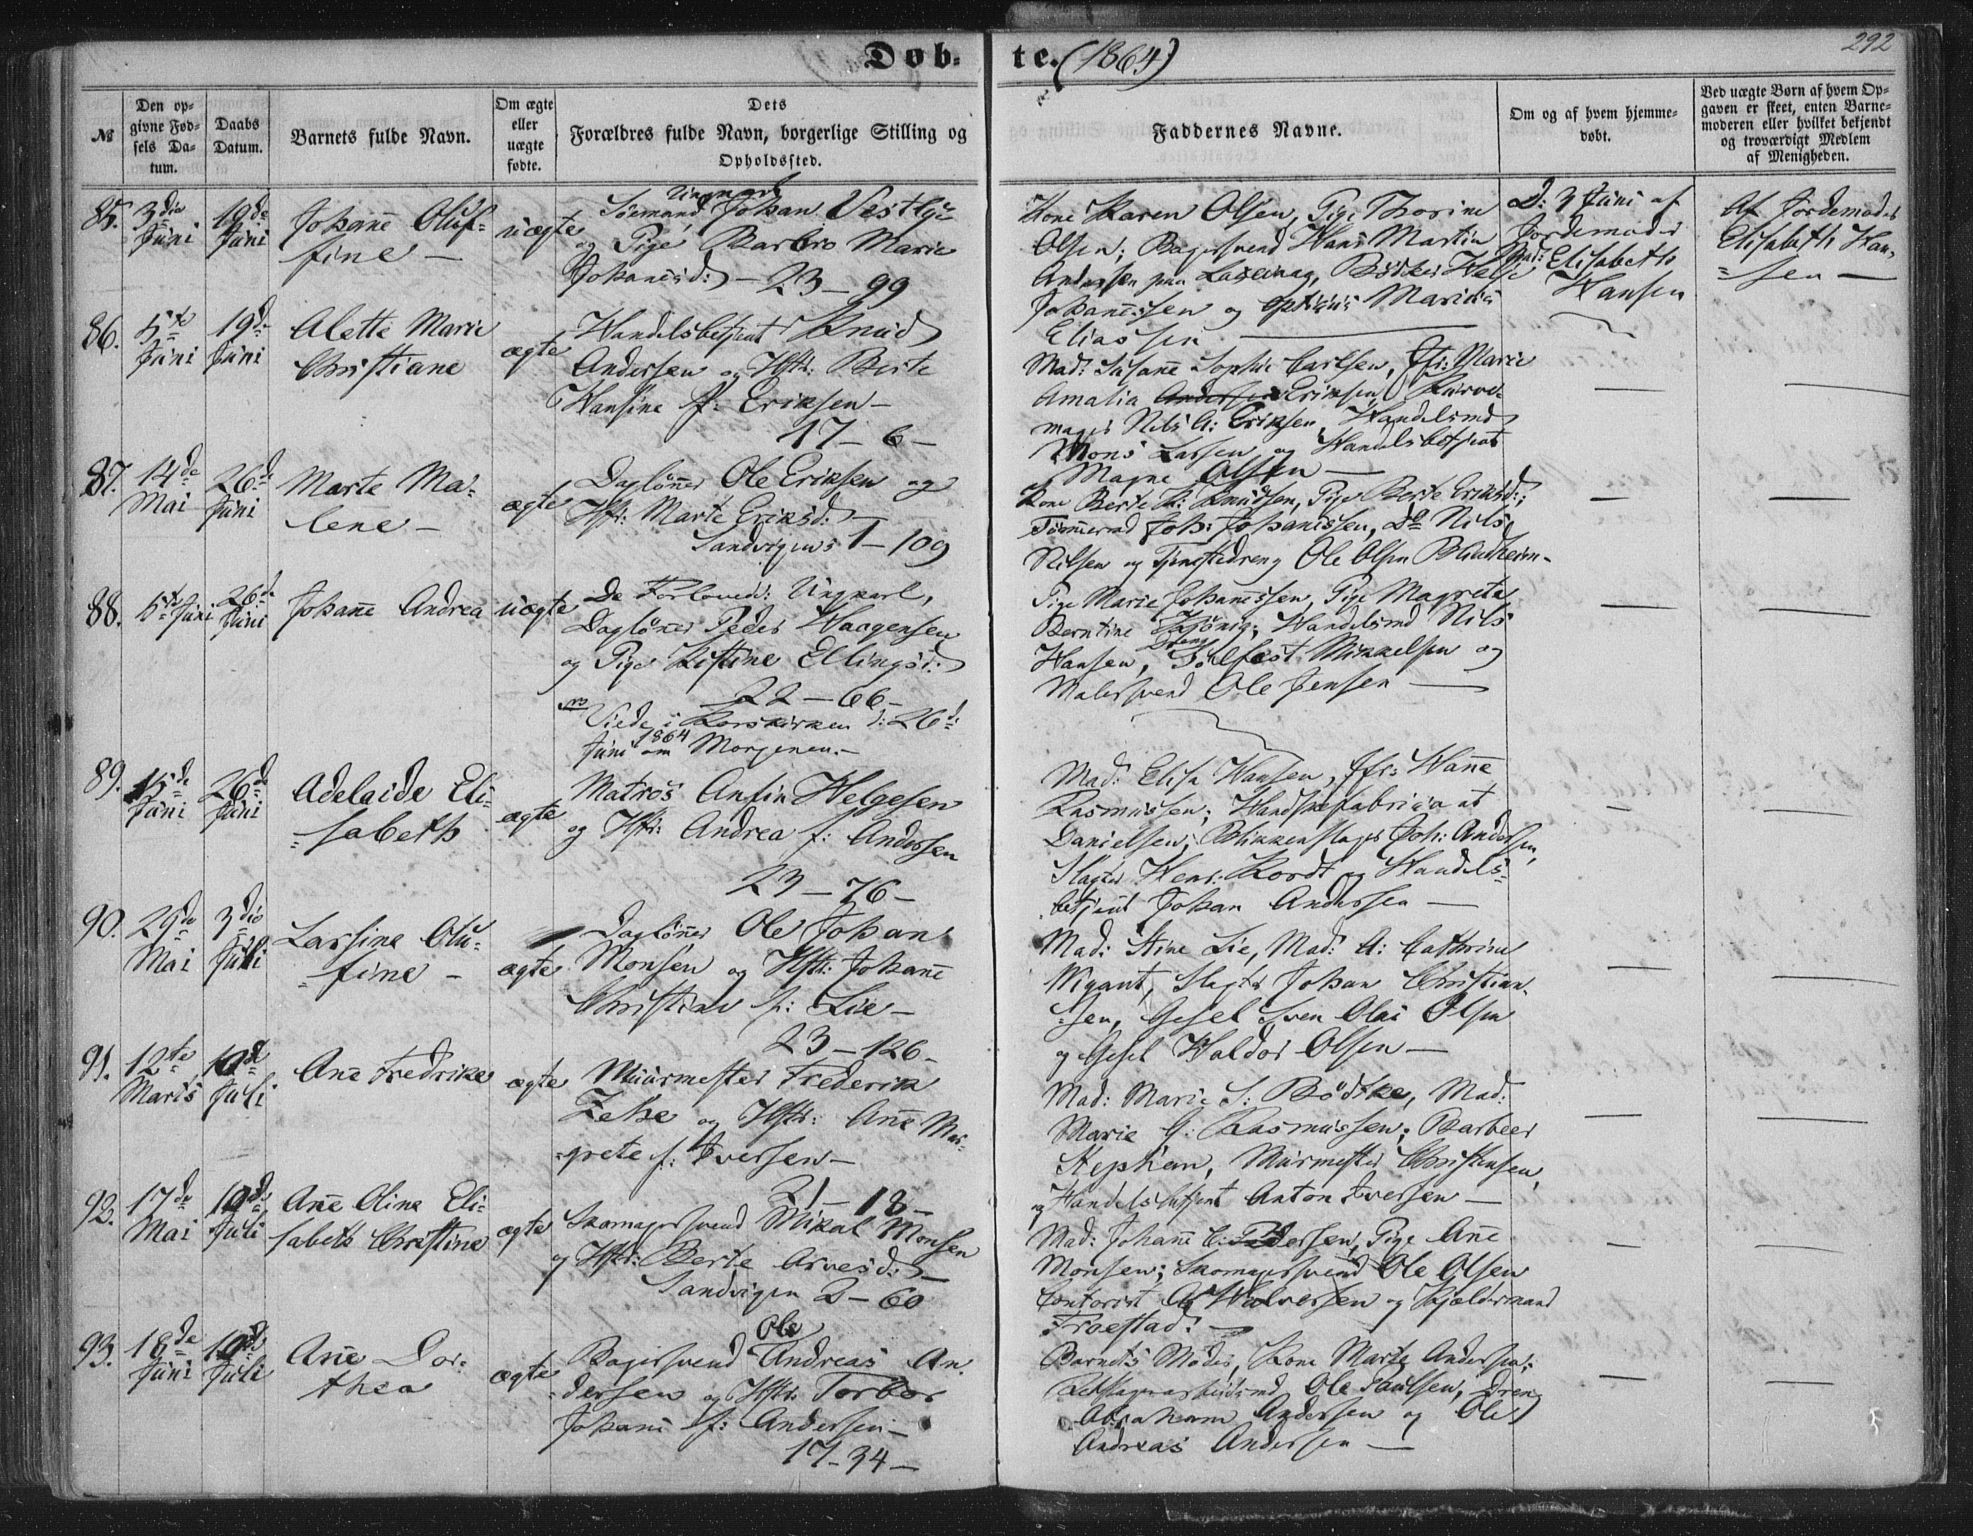 Døb-
te. (1864)
292
№
Den op-
givne Fød-
sels Da-
tum.
Daabs
Datum.
Barnets fulde Navn.
Om ægte
eller
uægte
fødte.
Dets
Forældres fulde Navn, borgerlige Stilling og
Opholdssted.
Faddernes Navne.
Om og af hvem hjemme-
døbt.
Ved uægte Børn af hvem Op-
gaven er skeet, enten Barne-
moderen eller hvilket bekjendt
og troværdigt Medlem
af Menigheden.
85. 3die Juni
19de Juni
Johanne Oluf-
fine —
uægte
Ungmand
Sømand Johan Vestlye
og Pige Barbro Marie
Johannesd: — 23 — 99
Kone Karen Olsen, Pige Thorine
Olsen; Bagersvend Hans Martin
Andersen paa Laxevaag, Bødker
Johannessen og Marius
Eliassen —
D: 3 Juni af
Jordemoder
Mad: Elisabeth
Hansen
Af Jordemoder
Elisabeth Han-
sen —
86. 5te Juni
19de Juni
Alette Marie
Christiane
ægte
Handelsbetjent Knud
Andersen og Hstr: Berte
Hansine f: Eriksen —
17 — 6 —
Mad: Susanne Sophie Carlsen, Jfr: Marie
Amalia Andersen Eriksen, Kurve-
mager Nils A: Eriksen, Handelsmd
Mons Larsen og Handelsbetjent
Magne Olsen —
—
—
87. 14de Mai
26de Juni
Marte Ma-
lene —
ægte
Dagløner Ole Eriksen og
Hstr: Marte Eriksd: —
Sandvigens 1 — 109
Kone Berte K: Knudsen, Pige Berte Eriksd:;
Tømmermd Joh: Johanessen, Do Nils
Nilsen og Tjenestedreng Ole Olsen Blindheim —
—
—
88. 5te Juni
26de Juni
Johanne Andrea
uægte
De Forlovede: Ungkarl,
Dagløner Peder Haagensen
og Pige Kistine Ellingsd:
22 — 66 —
Viede i Korskirken d: 26de
Juni 1864 om Morgenen. —
Pige Marie Johanessen, Pige Magreta
Berntine; Handelsmd Nils
Hansen, Dreng Mikkelsen og
Malersvend Ole Jensen —
—
—
89. 15de Juni
26de Juni
Adelaide Eli-
sabeth
ægte
Matros Anfin Helgesen
og Hstr: Andrea f: Andersen
23 — 76 —
Mad: Elisa Hansen, Jfr: Hanne
Rasmussen; Handskefabrikant
Danielsen, Blikkenslager Joh: Andersen,
Slagter Henr: Kordt og Handels-
betjent Johan Andersen —
—
—
90. 29de Mai
3die Juli
Larsine Olu-
fine —
ægte
Dagløner Ole Johan
Monsen og Hstr: Johanne
Christine f: Lie —
23 — 126 —
Mad: Stine Lie, Mad: A: Cathrine
Wigant, Slagter Johan Christian-
sen, Gesel Sven Olai Olsen
og Gesel Haldor Olsen —
—
—
91. 12te Marts
10de Juli
Ane Fredrike
ægte
Muurmester Frederik
Zehe og Hstr: Anne Mar-
grete f: Iversen —
21 — 18 —
Mad: Marie S: Bødtke, Mad:
Marie G: Rasmussen; Barbeer
Stephan, Murmester Christensen,
og Handelsbetjent Anton Iversen —
—
—
92. 17de Mai
10de Juli
Anne Oline Eli-
sabeth Christine
ægte
Skomagersvend Mikal Monsen
og Hstr: Berte Arvesd: —
Sandvigen 2 — 60
Mad: Johanne C: Pedersen, Pige Anne
Monsen; Skomagersvend Ole Olsen
Contorist A Halversen og Kjældermand
Froestad. —
—
—
93. 18de Juni
10de Juli
Anne Dor-
thea
ægte
Ole
Bagersvend Andreas An-
dersen og Hstr: Torbor
Johane f: Andersen —
17 — 34 —
Barnets Moder, Kone Marte Andersen;
Ole Paulsen, Dreng
Abraham Andersen og Ole
Andreas Andersen —
—
—